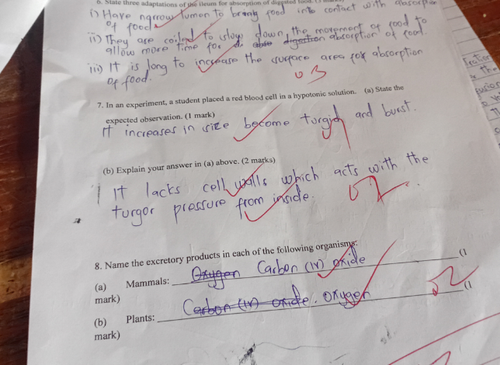 6. State three adaptations of the ileum for absorption of digested food.
i) Have narrow lumen to bring food into contact with
of food
ii) They are coiled to slow down the movement of food to
allow more time for digestion absorption of food.
iii) It is long to increase the surface area for absorption
of food.
03
7. In an experiment, a student placed a red blood cell in a hypotonic solution. (a) State the
expected observation. (1 mark)
It increases in size become turgid and burst.
(b) Explain your answer in (a) above. (2 marks)
It lacks cell walls which acts with the
turgor pressure from inside.
02
8. Name the excretory products in each of the following organisms:
(a) Mammals: Oxygen Carbon (IV) oxide (1
mark)
02
(b) Plants: Carbon (IV) oxide. oxygen (1
mark)